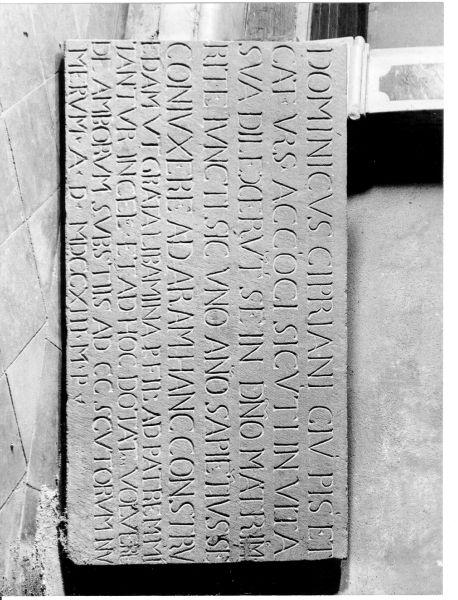 DOMINICVS CIPRIANI CIV PIS ET
CAT VRS ACCOCI SICVTI IN VITA
SVA DILEXERVT SE IN DNO MATRIM
RITE IVNCTI SIC VNO ANO SAPIETIVSSE
CONIVXERE AD ARAM HANC CONSTRV
EDAM VT GRATA LIBAMINA P FIE AD PATREM MI
TANTVR INCEP ET AD HOC DOTAT VOLVER
DE AMBORVM SVBSTIIS AD CC SCVTORVM NV
MERVM A D MDCCXIII M P A